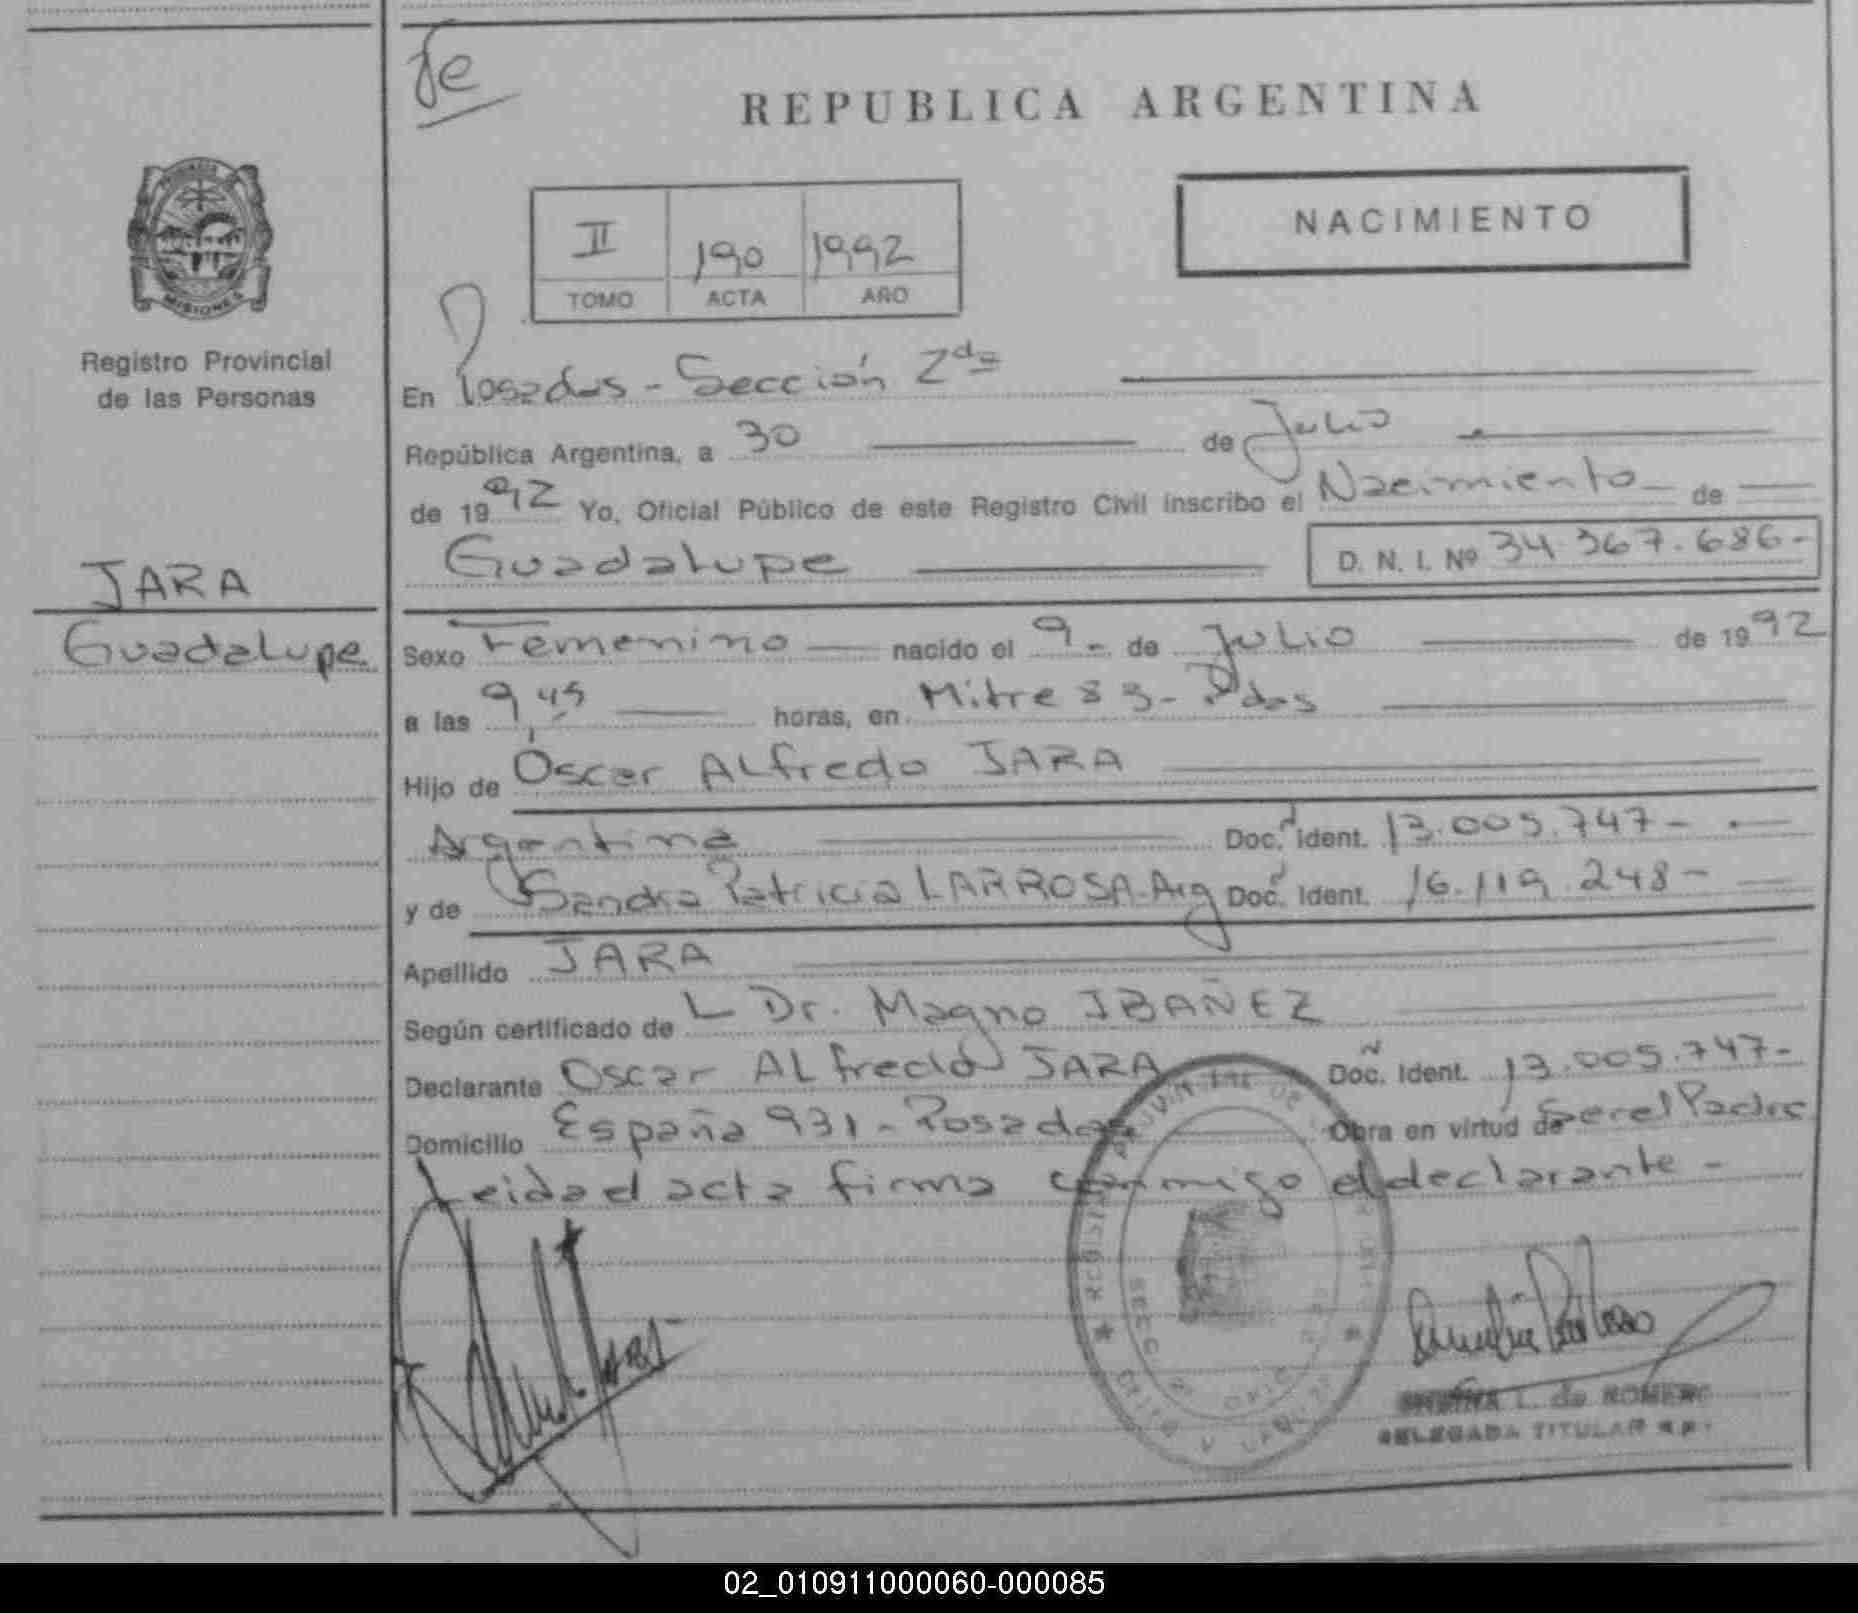 fe
REPUBLICA ARGENTINA
NACIMIENTO
II 190 1992
TOMO ACTA AÑO
MISIONES
Registro Provincial
de las Personas
JARA
Guadalupe
En Posadas - Sección 2da
República Argentina, a 30 de Julio
de 1992 Yo, Oficial Público de este Registro Civil inscribo el Nacimiento - de
Guadalupe D. N. I. Nº 34.367.686-
Sexo Femenino nacido el 9- de Julio de 1992
a las 9,45 horas, en Mitre 83- Pdas
Hijo de Oscar Alfredo JARA
Argentina Doc. Ident. 13.005.747-
y de Sandra Patricia LARROSA-Arg Doc. Ident. 16.119.248-
Apellido JARA
Según certificado de L Dr. Magno IBAÑEZ
Declarante Oscar Alfredo JARA Doc. Ident. 13.005.747-
Domicilio España 931-Posadas Obra en virtud de ser el Padre
Leida el acta firma conmigo el declarante -
L. de ROMERO
DELEGADA TITULAR
02_010911000060-000085